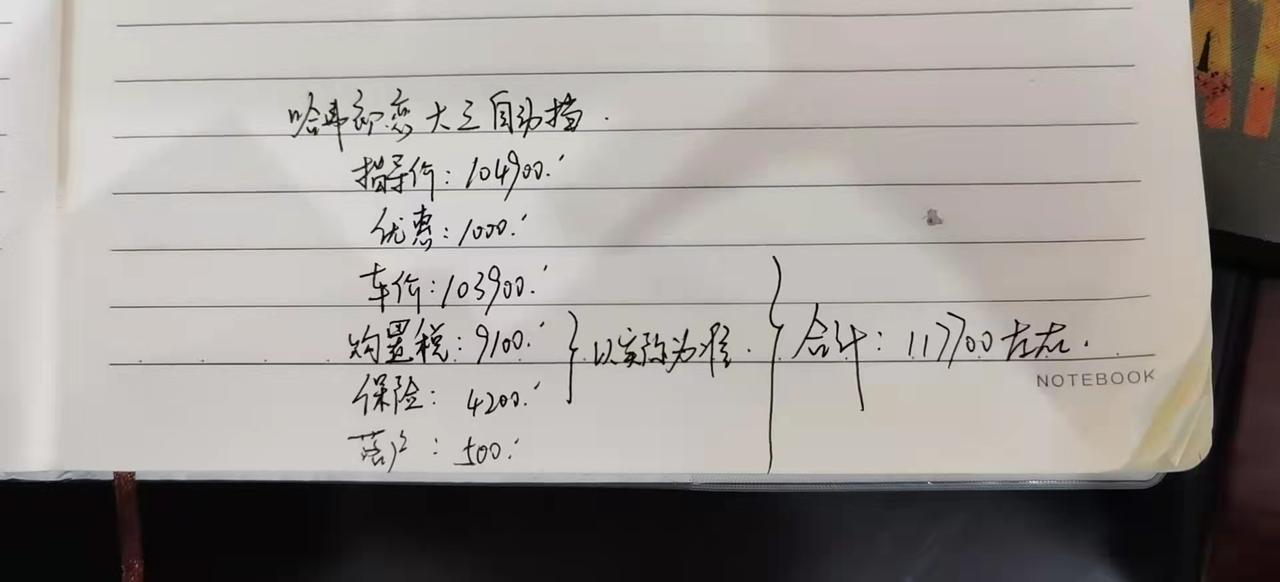 哈弗初恋大三自动挡.
指导价:104900.
优惠:1000.
车价:103900.
购置税:9100.
以实际为准.
合计:117700左右.
保险:4200.
落户:500.
NOTEBOOK